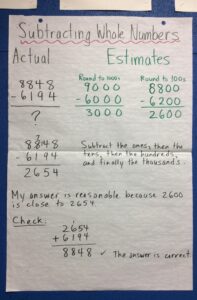 Subtracting Whole Numbers
Actual Estimates
Round to 1000s Round to 100s
8848 9000 8800
- 6194 - 6000 - 6200
? 3000 2600
7
8848 Subtract the ones, then the
- 6194 tens, then the hundreds,
2654 and finally the thousands.
My answer is reasonable because 2600
is close to 2654.
Check:
1
2654
+ 6194
8848 ✓ The answer is correct.